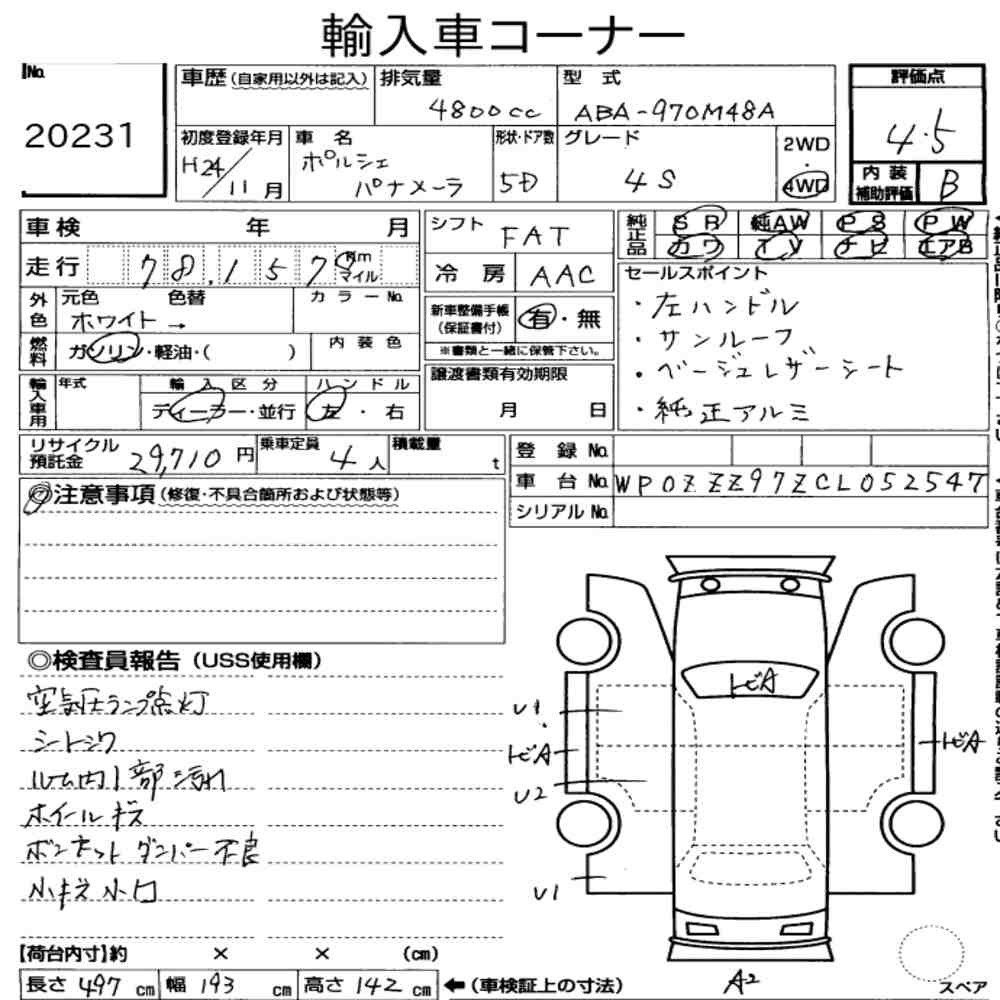 輸入車コーナー
No.
20231
車歴（自家用以外は記入）
排気量
4800cc
型 式
ABA-970M48A
評価点
4.5
初度登録年月
H24/11月
車 名
ポルシェ
パナメーラ
形状・ドア数
5D
グレード
4S
2WD
・
4WD
内 装
補助評価
B
車検 年 月
シフト
FAT
純正品
SR 純AW PS PW
カワ TV ナビ エアB
走行 78,157 Km マイル
冷 房
AAC
セールスポイント
・左ハンドル
・サンルーフ
・ベージュレザーシート
・純正アルミ
外色
元色 色替
ホワイト→
カラーNo.
新車整備手帳
（保証書付）
有・無
※書類と一緒に保管下さい。
燃料
ガソリン・軽油・( )
内 装 色
輸入車用
年式
輸 入 区 分
ディーラー・並行
ハ ン ド ル
左 ・ 右
譲渡書類有効期限
月 日
リサイクル
預託金
29,710円
乗車定員
4人
積載量
t
登 録 No.
車 台 No. WP0ZZZ97ZCL052547
シリアル No.
注意事項（修復・不具合箇所および状態等）
◎検査員報告（USS使用欄）
空気圧ランプ点灯
シートシワ
ルーム内1部汚れ
ホイールキズ
ボンネットダンパー不良
小キズ小凹
トビA
U1
トビA
トビA
U2
U1
A2
【荷台内寸】約 × × (cm)
長さ 497 cm 幅 193 cm 高さ 142 cm ←（車検証上の寸法）
スペア